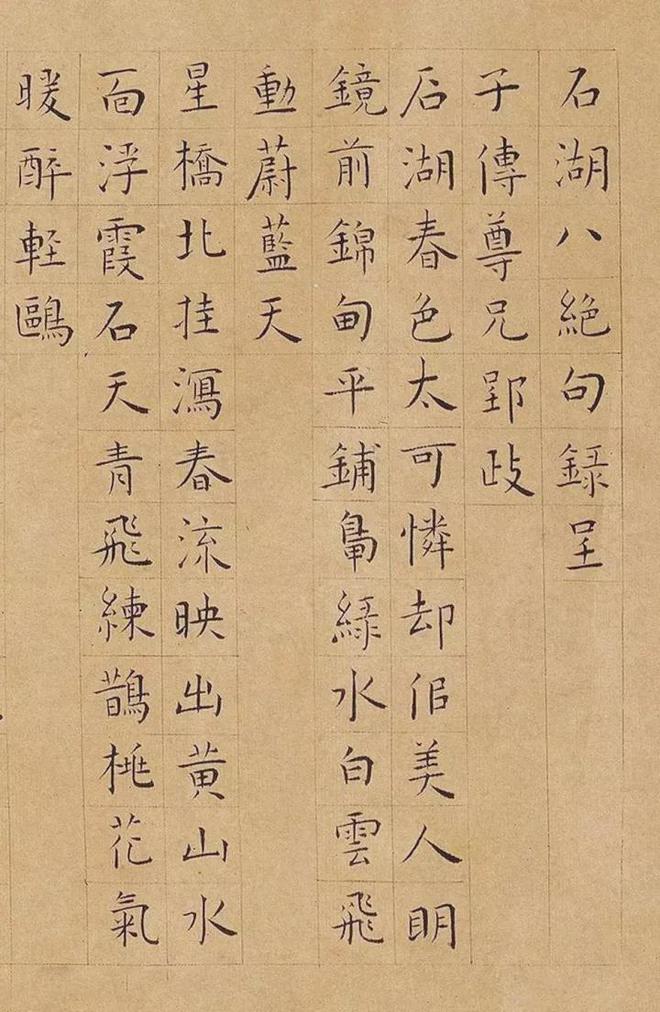 石湖八絶句録呈
子傳尊兄郢政
石湖春色太可憐却佀美人明
鏡前錦甸平鋪鳧緑水白雲飛
動蔚藍天
星橋北挂瀉春流映出黄山水
面浮霞石天青飛練鵲桃花氣
暖醉輕鷗